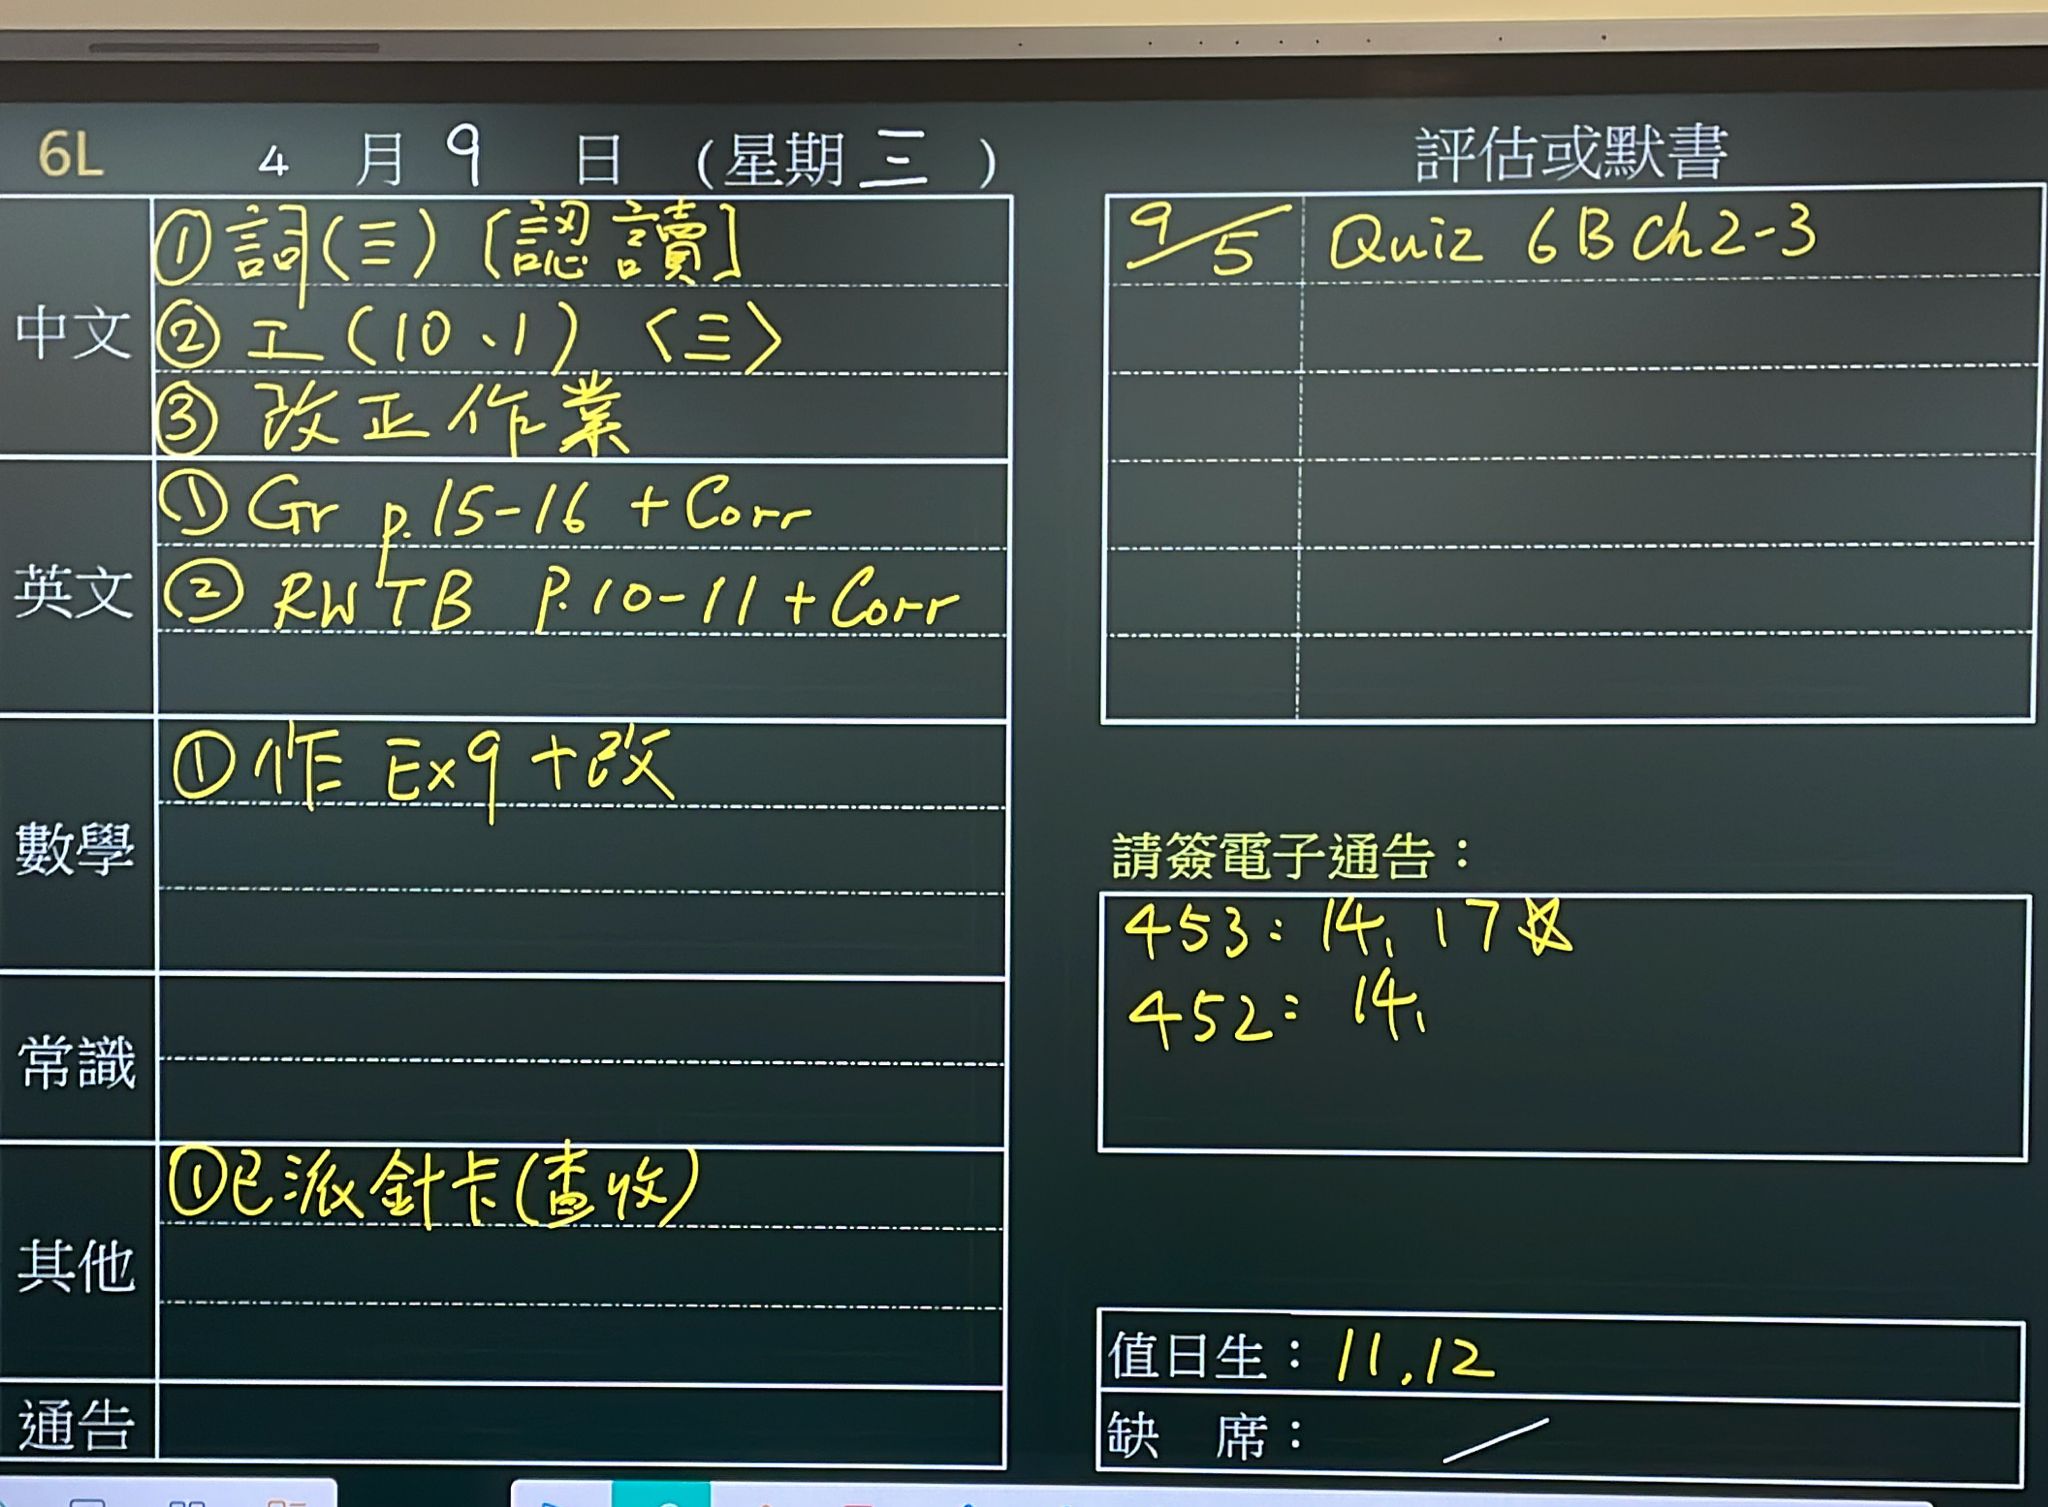 6L 4 月 9 日 (星期三)
中文
①詞(三)[認讀]
②工(10、1)〈三〉
③改正作業
英文
①Gr p.15-16 +Corr
②RWTB P.10-11+Corr
數學
①作 Ex9+改
常識
其他
①已派針卡(查收)
通告
評估或默書
9/5 Quiz 6B Ch2-3
請簽電子通告：
453: 14, 17☆
452: 14,
值日生： 11,12
缺 席： /